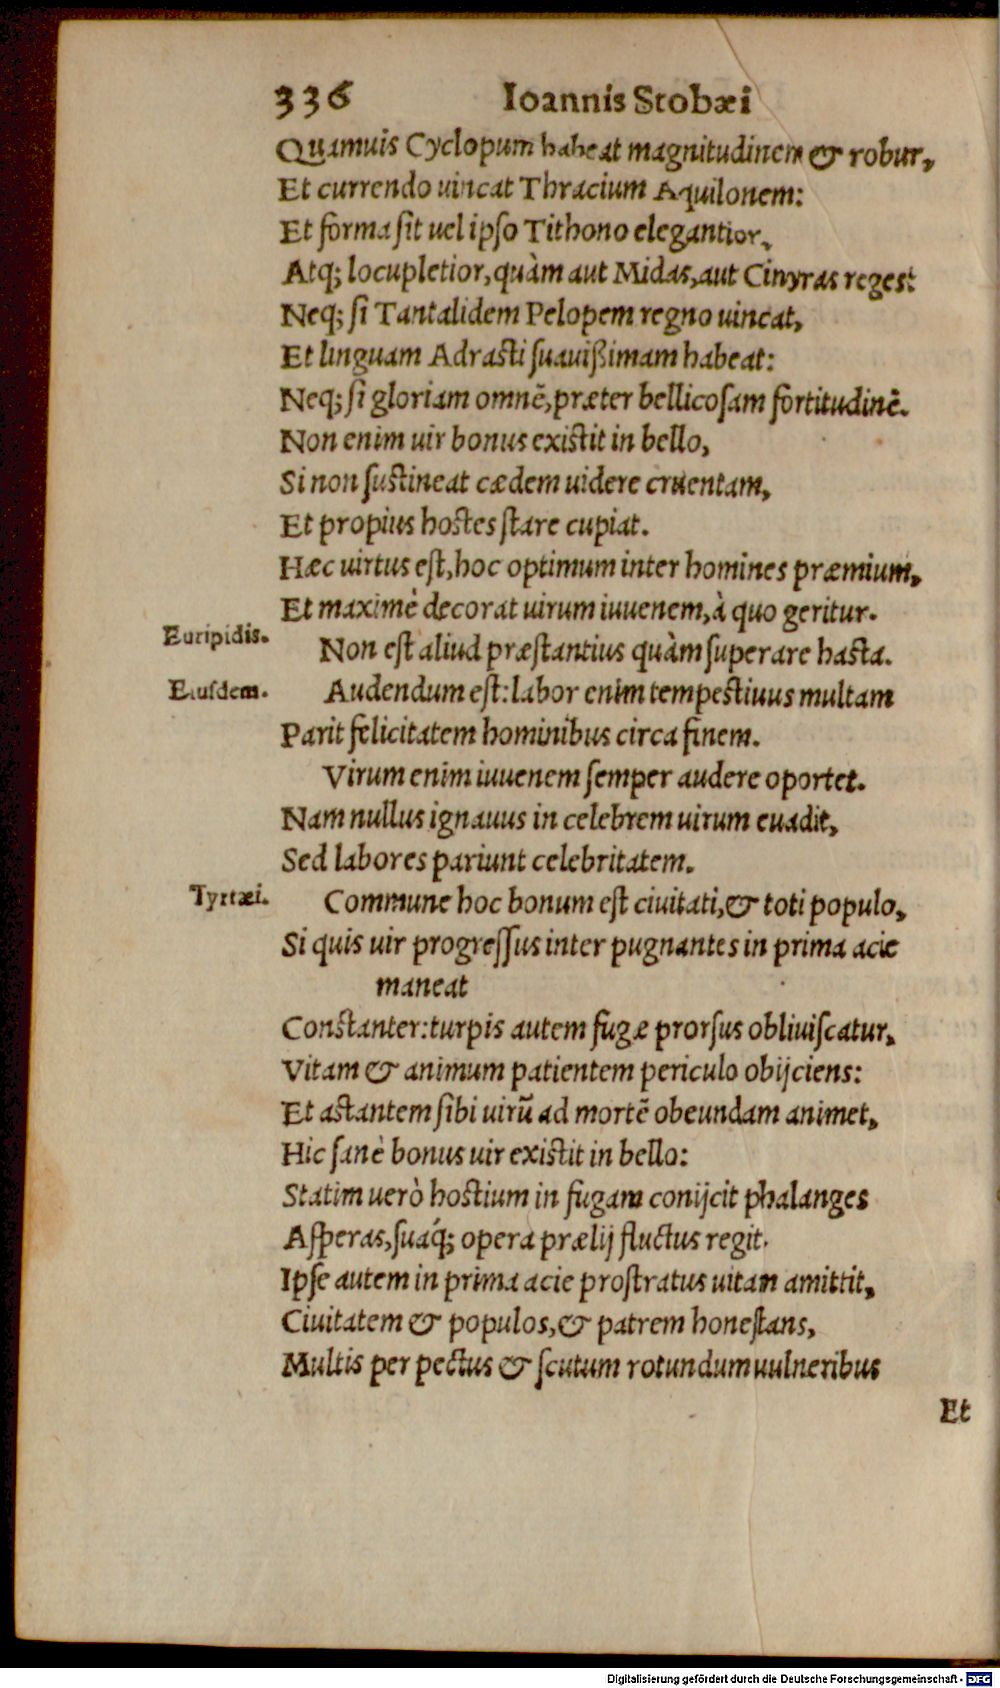 336 Ioannis Stobæi
Quamuis Cyclopum habeat magnitudinem & robur,
Et currendo uincat Thracium Aquilonem:
Et forma ſit uel ipſo Tithono elegantior,
Atq; locupletior, quàm aut Midas, aut Cinyras reges:
Neq; ſi Tantalidem Pelopem regno uincat,
Et linguam Adraſti ſuauißimam habeat:
Neq; ſi gloriam omnē, præter bellicoſam fortitudinē.
Non enim uir bonus exiſtit in bello,
Si non ſuſtineat cædem uidere cruentam,
Et propius hoſtes ſtare cupiat.
Hæc uirtus eſt, hoc optimum inter homines præmium,
Et maximè decorat uirum iuuenem, à quo geritur.
Euripidis. Non eſt aliud præſtantius quàm ſuperare haſta.
Eiuſdem. Audendum eſt: labor enim tempeſtiuus multam
Parit felicitatem hominibus circa finem.
Virum enim iuuenem ſemper audere oportet.
Nam nullus ignauus in celebrem uirum euadit,
Sed labores pariunt celebritatem.
Tyrtæi. Commune hoc bonum eſt ciuitati, & toti populo,
Si quis uir progreſſus inter pugnantes in prima acie
maneat
Conſtanter: turpis autem fugæ prorſus obliuiſcatur,
Vitam & animum patientem periculo obijciens:
Et aſtantem ſibi uirū ad mortē obeundam animet,
Hic ſanè bonus uir exiſtit in bello:
Statim uerò hoſtium in fugam conijcit phalanges
Aſperas, ſuaq́; opera prælij fluctus regit.
Ipſe autem in prima acie proſtratus uitam amittit,
Ciuitatem & populos, & patrem honeſtans,
Multis per pectus & ſcutum rotundum uulneribus
Et
Digitalisierung gefördert durch die Deutsche Forschungsgemeinschaft - DFG